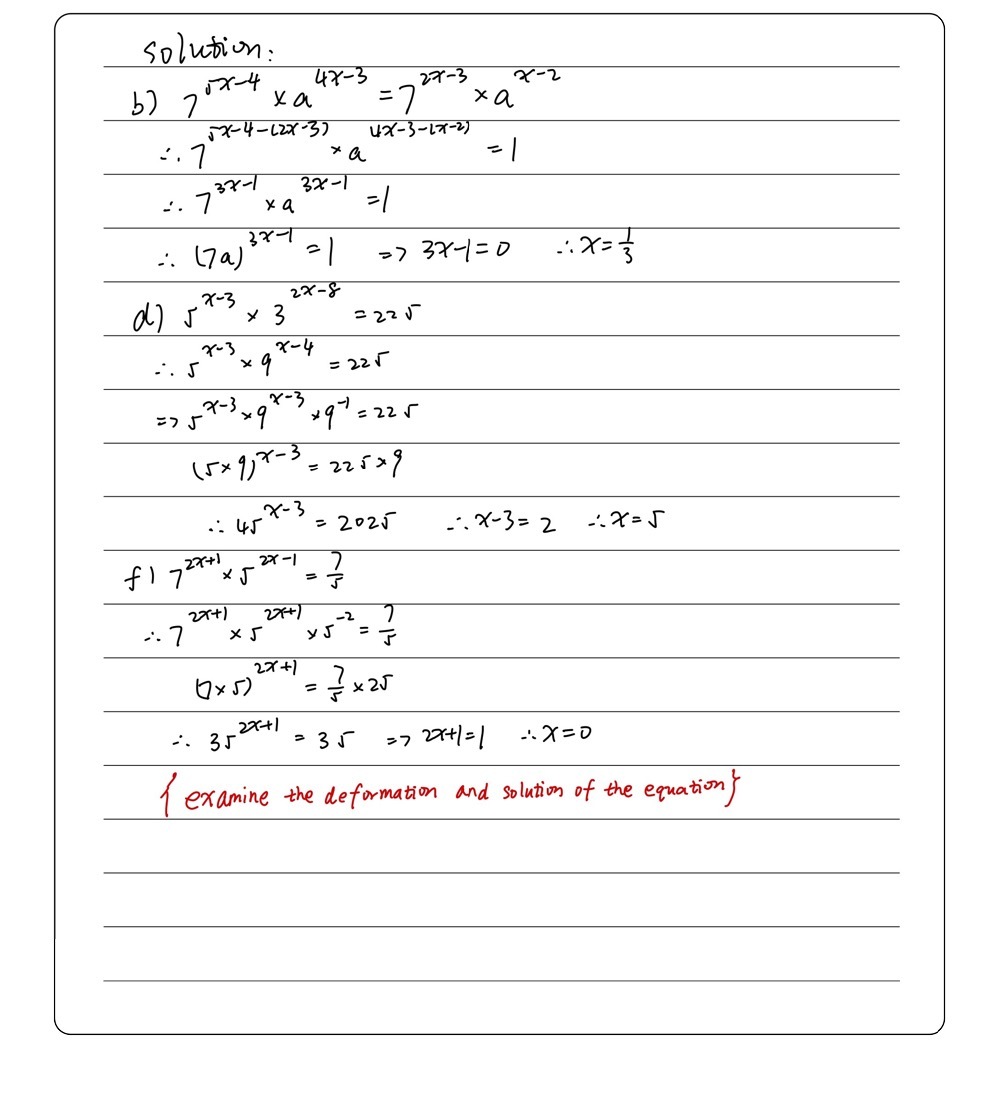 solution:
b) 7^{5x-4} × a^{4x-3} = 7^{2x-3} × a^{x-2}
∴ 7^{5x-4-(2x-3)} × a^{4x-3-(x-2)} = 1
∴ 7^{3x-1} × a^{3x-1} = 1
∴ (7a)^{3x-1} = 1 => 3x-1=0 ∴ x = 1/3
d) 5^{x-3} × 3^{2x-8} = 225
∴ 5^{x-3} × 9^{x-4} = 225
=> 5^{x-3} × 9^{x-3} × 9^{-1} = 225
(5×9)^{x-3} = 225×9
∴ 45^{x-3} = 2025 ∴ x-3=2 ∴ x=5
f) 7^{2x+1} × 5^{2x-1} = 7/5
∴ 7^{2x+1} × 5^{2x+1} × 5^{-2} = 7/5
(7×5)^{2x+1} = 7/5 × 25
∴ 35^{2x+1} = 35 => 2x+1=1 ∴ x=0
{examine the deformation and solution of the equation}